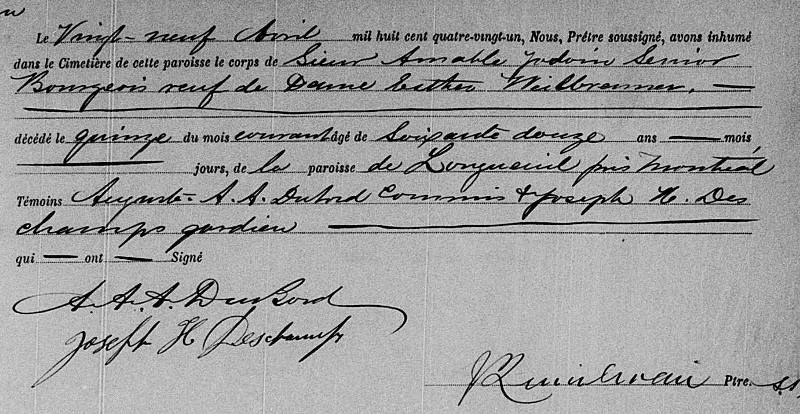 Le Vingt-neuf Avril mil huit cent quatre-vingt-un, Nous, Prêtre soussigné, avons inhumé
dans le Cimetière de cette paroisse le corps de Sieur Amable Jodoin Senior
Bourgeois veuf de Dame Esther Weilbrenner. —
décédé le quinze du mois courant âgé de Soixante douze ans — mois
— jours, de la paroisse de Longueuil près Montréal
Témoins Auguste A. A. Dubord Commis & Joseph H. Des
champs gardien —
qui — ont — Signé
A. A. A. DuBord
Joseph H Deschamps
Ptre. s.s.